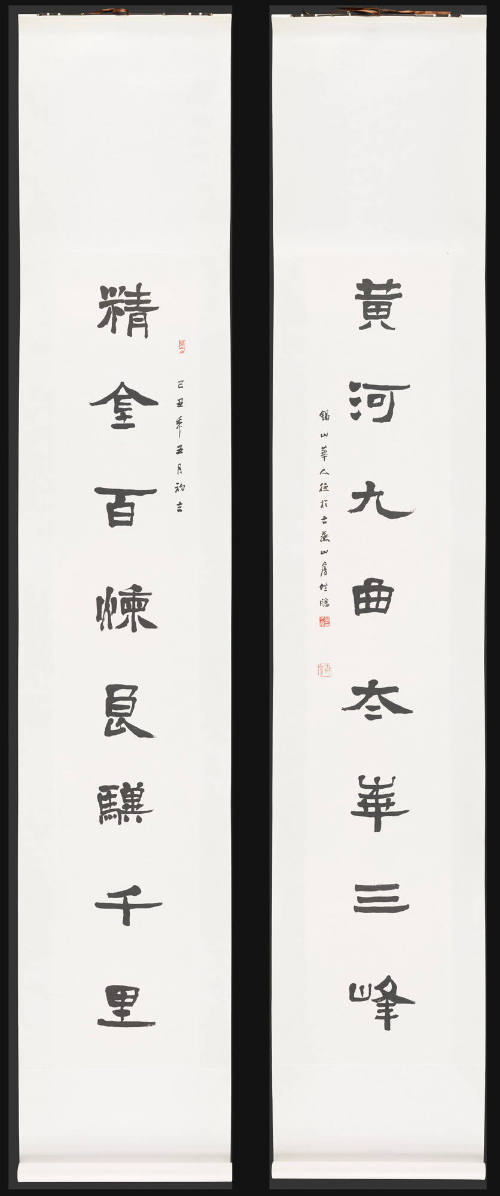 黄河九曲夳華三峰
錫山華人德於古燕山房
己丑年五月初吉
精金百煉良驥千里